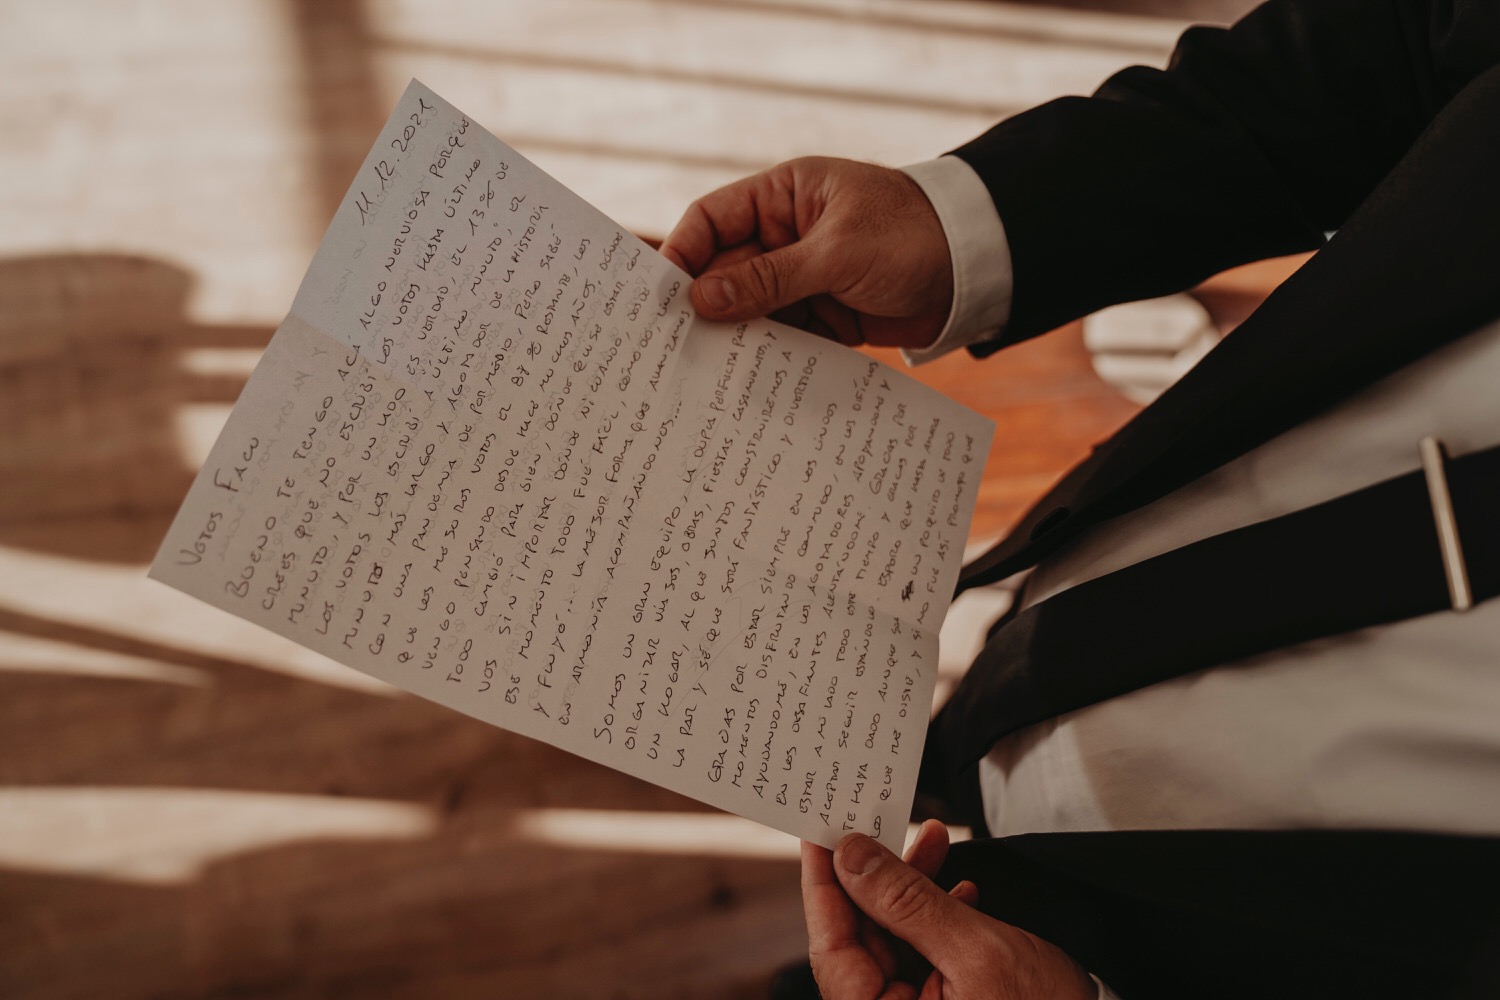 11.12.2021
VOTOS FACU
BUENO TE TENGO ACÁ, ALGO NERVIOSA PORQUE
CREES QUE NO ESCRIBÍ LOS VOTOS HASTA ÚLTIMO
MINUTO, Y POR UN LADO ES VERDAD, EL 13% DE
LOS VOTOS LOS ESCRIBÍ A ÚLTIMO MINUTO, EL
MINUTO MÁS LARGO Y AGOTADOR DE LA HISTORIA
CON UNA PANDEMIA DE POR MEDIO, PERO SABÉ
QUE LOS MEJORES VOTOS EL 87% RESTANTE, LOS
VENGO PENSANDO DESDE HACE MUCHOS AÑOS, DÓNDE
TODO CAMBIÓ PARA BIEN, DÓNDE QUISE ESTAR CON
VOS SIN IMPORTAR DÓNDE NI CUÁNDO, DESDE
ESE MOMENTO TODO FUÉ FÁCIL, CÓMODO, LINDO
Y FLUYÓ... LA MEJOR FORMA QUE AVANZAMOS
EN ARMONÍA ACOMPAÑÁNDONOS...
SOMOS UN GRAN EQUIPO, LA DUPLA PERFECTA PARA
ORGANIZAR VIAJES, OBRAS, FIESTAS, CASAMIENTOS, Y
UN HOGAR, AL QUE JUNTOS CONSTRUIREMOS A
LA PAR Y SÉ QUE SERÁ FANTÁSTICO Y DIVERTIDO.
GRACIAS POR ESTAR SIEMPRE EN LOS LINDOS
MOMENTOS DISFRUTANDO CONMIGO, EN LOS DIFÍCILES
AYUDANDOME, EN LOS AGOTADORES APOYANDOME Y
EN LOS DESAFIANTES ALENTÁNDOME. GRACIAS POR
ESTAR A MI LADO TODO ESTE TIEMPO Y GRACIAS POR
ACEPTAR SEGUIR ESTÁNDOLO. ESPERO QUE HASTA AHORA
TE HAYA DADO AUNQUE SEA UN POQUITO DE TODO
LO QUE ME DISTE, Y SI NO FUE ASÍ PROMETO QUE